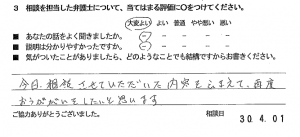 3 相談を担当した弁護士について、当てはまる評価に○をつけてください。
大変よい よい 普通 やや悪い 悪い
■ あなたの話をよく聞きましたか。
■ 説明は分かりやすかったですか。
■ 気がついたことがありましたら、どのようなことでも結構ですからお書きください。
今日、相談させていただいた内容をふまえて、再度
おうかがいをしたいと思います
ご協力ありがとうございました。 相談日 30.4.01